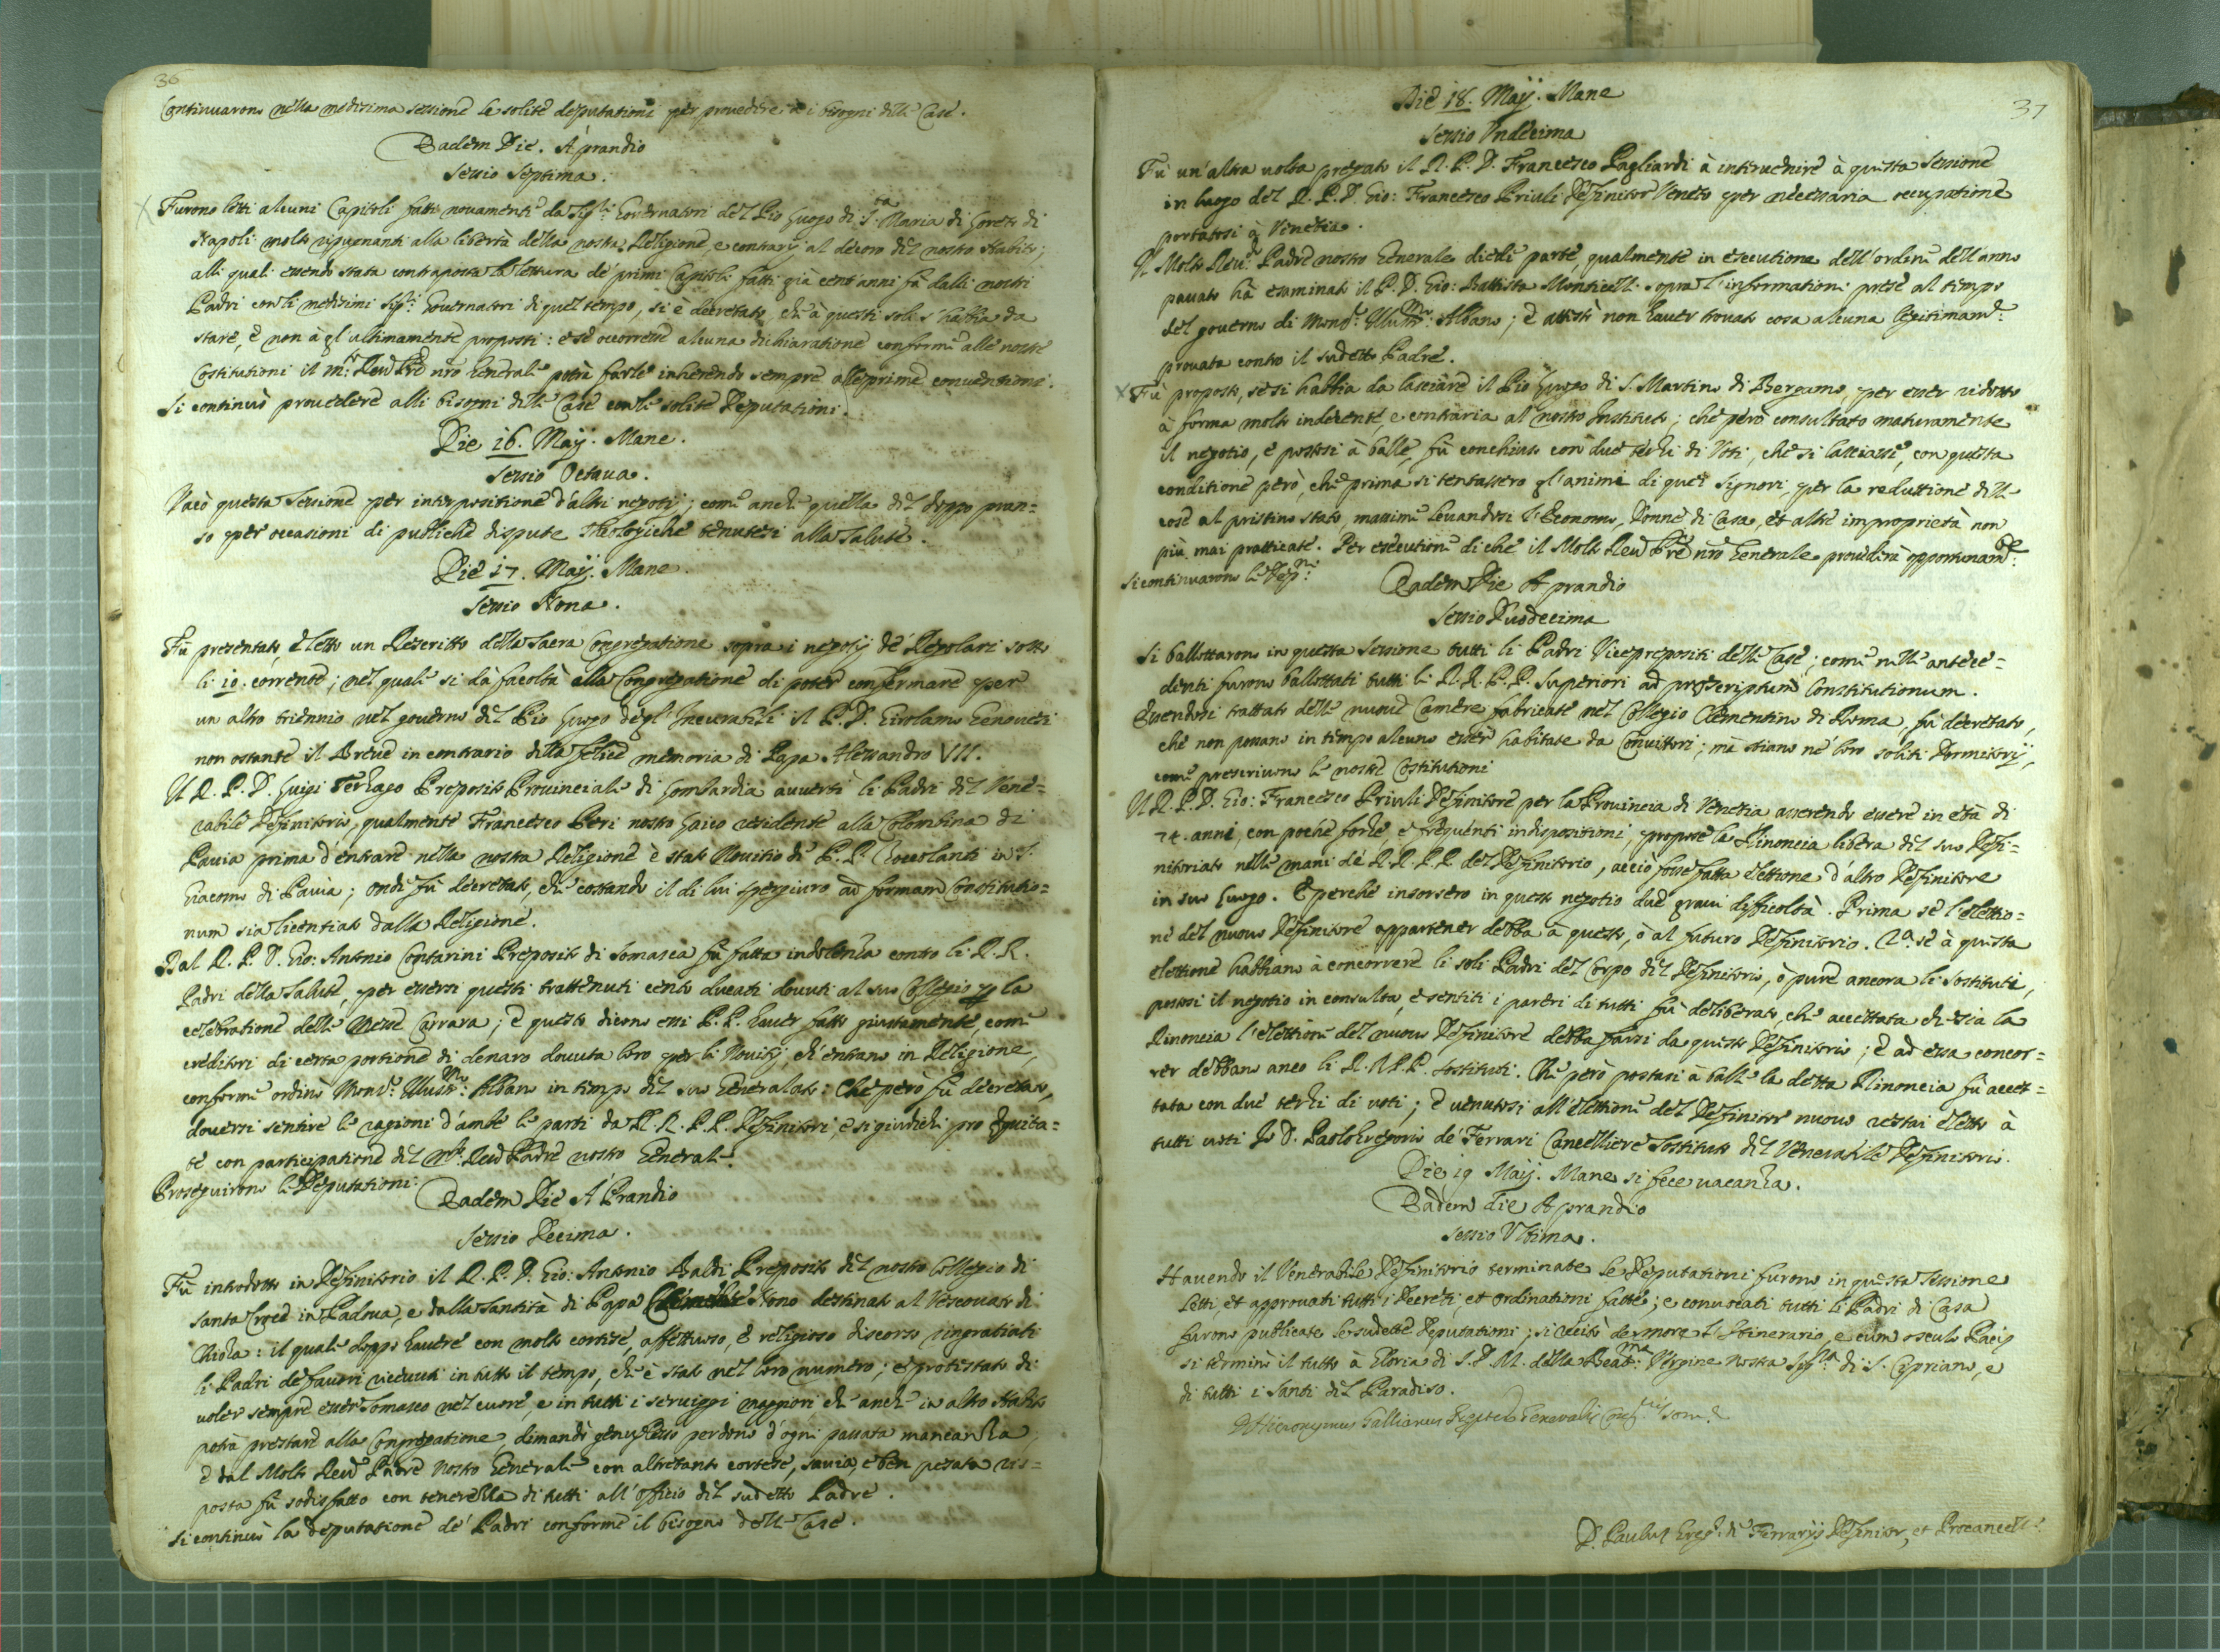 36
Continuarono nella medesima sessione le solite deputationi per provedere a i bisogni delle Case.
Eadem Die. A prandio
Sessio Septima.
Furono letti alcuni Capitoli fatti novamente da Sig.ri Governatori del Pio Luogo di S.ta Maria di Loreto di
Napoli molto ripugnanti alla libertà della nostra Religione, e contrarij al decoro del nostro Habito;
alli quali essendo stata contraposta la lettura de' primi Capitoli fatti già cent'anni fà dalli nostri
Padri con li medesimi Sig.ri Governatori di quel tempo, si è decretato, che à questi soli s'habbia da
stare, e non à gl'ultimamente proposti: e se occorresse alcuna dichiaratione conforme alle nostre
Costitutioni il M.to Reu.do Pre nro Generale potrà farle inherendo sempre alle prime conventioni.
Si continuò provedere alli bisogni delle Case con le solite Deputationi.
Die 16. Maij. Mane.
Sessio Octava.
Vacò questa Sessione per interpositione d'altri negotij; come anche quella del doppo pran=
so per occasioni di publiche dispute Theologiche tenutesi alla Salute.
Die 17. Maij. Mane.
Sessio Nona.
Fù presentato, e letto un Rescritto della Sacra Congregatione sopra i negotij de' Regolari sotto
li 10. corrente; nel quale si dà facoltà alla Congregatione di poter confermare per
un altro triennio nel governo del Pio Luogo degl'Incurabili il P. D. Girolamo Genovesi
non ostante il Breve in contrario della felice memoria di Papa Alessandro VII.
Il R. P. D. Luigi Terzago Preposito Provinciale di Lombardia avvertì li Padri del Vene=
rabile Definitorio, qualmente Francesco Peri nostro Laico residente alla Colombina di
Pavia prima d'entrare nella nostra Religione è stato Novitio de' P. P. Zoccolanti in S.
Giacomo di Pavia; onde fù decretato, che costando il di lui spergiuro ad formam Constitutio=
num sia licentiato dalla Religione.
Dal R. P. D. Gio: Antonio Contarini Preposito di Somasca fù fatta indolenza contro li R. R.
Padri della Salute, per essersi questi trattenuti cento ducati dovuti al suo Collegio per la
celebratione delle Messe Carrara; e questo dicono essi P. P. haver fatto giustamente, come
creditori di certa portione di denaro dovuta loro per li Novitij, ch'entrano in Religione,
conforme ordinò Mons.r Illustr.mo Albano in tempo del suo Generalato: Che però fù decretato,
doversi sentire le ragioni d'ambe le parti da R. R. P. P. Definitori, e si giudichi pro Equita=
te con participatione del M.to Reud Padre nostro Generale.
Proseguirono le Deputationi.
Eadem Die A Prandio
Sessio Decima.
Fù introdotto in Definitorio il R. P. D. Gio: Antonio Baldi Preposito del nostro Collegio di
Santa Croce in Padova, e dalla Santità di Papa Clemente Nono destinato al Vescovato di
Chioza: il quale doppo havere con molto cortese, affettuoso, e religioso discorso ringratiati
li Padri de' favori ricevuti in tutto il tempo, che è stato nel loro numero; e protestato di
voler sempre esser Somasco nel cuore, e in tutti i serviggi maggiori che anche in altro Habito
potrà prestare alla Congregatione, dimandò genuflesso perdono d'ogni passata mancanza;
e dal Molto Reud Padre Nostro Generale con altretanto cortese, savia, e ben pesata ris=
posta fù sodisfatto con tenerezza di tutti all'officio del sudetto Padre.
Si continuò la deputatione de' Padri conforme il bisogno delle Case.
37
Die 18. Maij. Mane
Sessio Undecima
Fù un'altra volta pregato il R. P. D. Francesco Pagliardi à intervenire à questa Sessione
in luogo del R. P. D. Gio: Francesco Priuli Definitor Veneto per necessaria occupatione
portatosi à Venetia.
Il Molto Reu.do Padre nostro Generale diede parte, qualmente in esecutione dell'ordine dell'anno
passato hà esaminato il P. D. Gio: Battista Monticelli sopra l'informationi prese al tempo
del governo di Mons.r Illustr.mo Albano; e attestò non haver trovato cosa alcuna legitimam.te
provata contro il sudetto Padre.
Fù proposto, se si habbia da lasciare il Pio Luogo di S. Martino di Bergamo, per esser ridotto
à forma molto indecente, e contraria al nostro Instituto; che però consultato maturamente
il negotio, e postosi à balle, fù conchiuso con due terzi di Voti, che si lasciasse, con questa
conditione però, che prima si tentassero gl'animi di quei Signori, per la reduttione delle
cose al pristino stato, massime levandosi l'Economo, Donne di Casa, et altre improprietà non
più mai pratticate. Per esecutione di che il Molto Reud Pre nro Generale provederà opportunam.te
Si continuarono le Dep.ni
Eadem Die A prandio
Sessio Duodecima
Si ballottarono in questa Sessione tutti li Padri Vicepropositi delle Case; come nelle antece=
denti furono ballottati tutti li R. R. P. P. Superiori ad praescriptum Constitutionum.
Essendosi trattato delle nuove Camere fabricate nel Collegio Clementino di Roma, fù decretato,
che non possano in tempo alcuno esser habitate da Convittori; mà stiano ne' loro soliti Dormitorij,
come prescrivono le nostre Costitutioni
Il R. P. D. Gio: Francesco Priuli Definitore per la Provincia di Venetia asserendo essere in età di
74. anni, con poche forze, e frequenti indispositioni, propose la Rinoncia libera del suo Defi=
nitoriato nelle mani de' R. R. P. P. del Definitorio, acciò fosse fatta elettione d'altro Definitore
in suo luogo. E perche insorsero in questo negotio due gravi difficoltà. Prima se l'elettio=
ne del nuovo Definitore appartener debba à questo, ò al futuro Definitorio. 2.a se à questa
elettione habbiano à concorrere li soli Padri del Corpo del Definitorio, ò pure ancora li Sostituti,
postosi il negotio in consulta, e sentiti i pareri di tutti fù deliberato, che accettata che sia la
Rinoncia l'elettione del nuovo Definitore debba farsi da questo Definitorio; e ad essa concor=
rer debbano anco li R. R. P. P. Sostituti. Che però postasi à balle la detta Rinoncia fù accet=
tata con due terzi di voti; e venutosi all'elettione del Definitor nuovo restai eletto à
tutti voti Io D. Paolo Gregorio de' Ferrari Cancelliere Sostituto del Venerabile Definitorio.
Die 19 Maij. Mane si fece vacanza.
Eadem Die A prandio
Sessio Ultima.
Havendo il Venerabile Definitorio terminate le Deputationi furono in questa Sessione
letti, et approvati tutti i Decreti, et Ordinationi fatte; e convocati tutti li Padri di Casa
furono publicate le sudette Deputationi; si recitò de more l'Itinerario, e cum osculo Pacis
si terminò il tutto à Gloria di S. D. M. della Beat.ma Vergine nostra Sig.ra di S. Cipriano, e
di tutti i Santi del Paradiso.
D. Hieronymus Gallianus Generalis
D. Paulus Greg.s de Ferrarijs Definitor, et Procancell.s